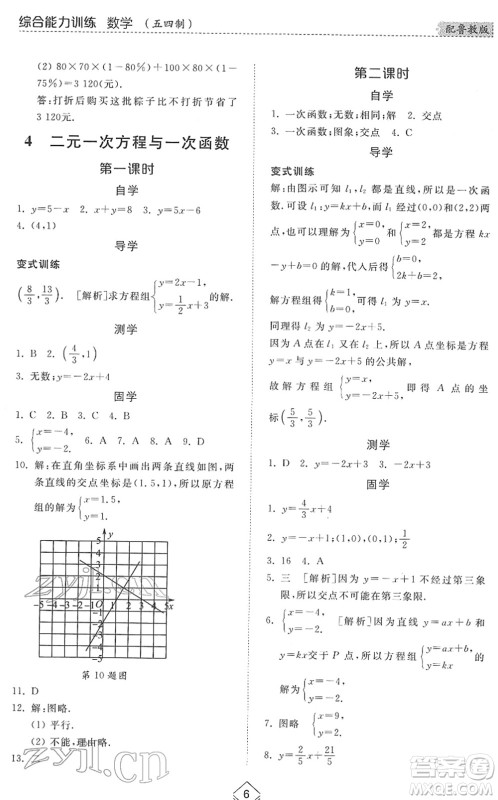 综合能力训练 数学 (五四制)
配鲁教版
(2) 80×70×(1-80%)+80×80×(1-
75%)=3 120(元).
答:打折后购买这批粽子比不打折节省了
3 120元.
4 二元一次方程与一次函数
第一课时
自学
1. y=5-x 2. x+y=8 3. y=2x
4. (4,1)
导学
变式训练
(8/3, 13/3). [解析]求方程组{y=2x-1, y=1/2x+3的解.
测学
1. B 2. (4/3, 1)
3. 无数; y=-2x+4
固学
1. C 2. B 3. C 4. D
5. {x=-4, y=-2. 6. A 7. A 8. A 9. A
10. 解:在直角坐标系中画出两条直线如图,两
条直线的交点坐标是(1.5,1),所以原方程
组的解为{x=1.5, y=1.
y
5
4
3
2
1
-5-4-3-2-1 0 1 2 3 4 5x
-1
-2
-3
-4
-5
第10题图
11. D
12. 解:图略.
(1) 平行.
(2) 不能,理由略.
13.
第二课时
自学
1. 一次函数;无数;相同;解 2. 交点
3. 一次函数;图象;交点 4. C
导学
变式训练
解:由图示可知 l₁,l₂ 都是直线,所以是一次函
数.设 l₁:y=kx+b,而 l₁ 经过(0,0)和(2,2)两
点,所以{x=0, y=0和{x=2, y=2都是方程kx+b
-y=0的解,代入后可得方程组{b=0, 2k+b=2.
解方程组得{k=1, b=0.
同理得 l₂ 为y=-2x+5.
因为A点既在 l₁ 上又在 l₂ 上,所以A点坐标是方
程y=x与y=-2x+5的公共解,
故解方程组{y=x, y=-2x+5,即得A点的坐
标(5/3, 5/3).
测学
1. D 2. y=-x+4 3. y=-2x+2
固学
1. y=4/3x+4
2. y=-x+1;(1,0),(0,1);1/2
3. 16 4. A
5. 三 [解析]因为y=-x+1不过第三象
限,所以交点不可能在第三象限.
6. {x=-4, y=-2. [解析]因为y=ax+b和y=
kx交于P点,所以方程组{y=ax+b, y=kx
的解是{x=-4, y=-2.
7. 图略 {x=2, y=1
8. {x=-2/5, y=21/5
6
zyjl.cn
答案圈